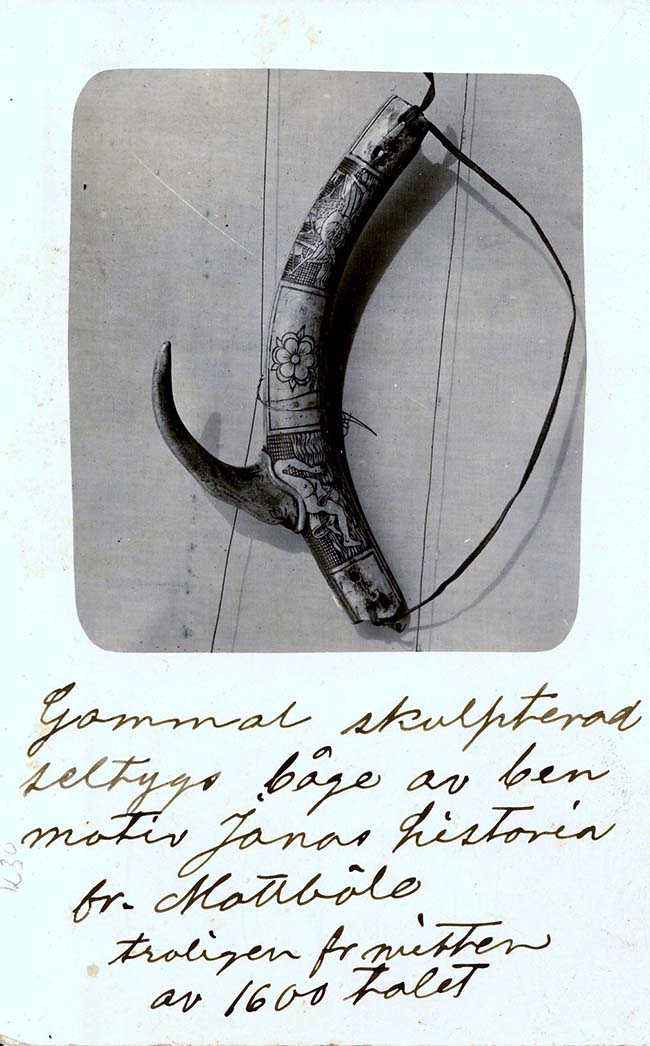 Gammal skulpterad
seltygs båge av ben
motiv Jonas historia
fr. Mattböle
troligen fr mitten
av 1600 talet